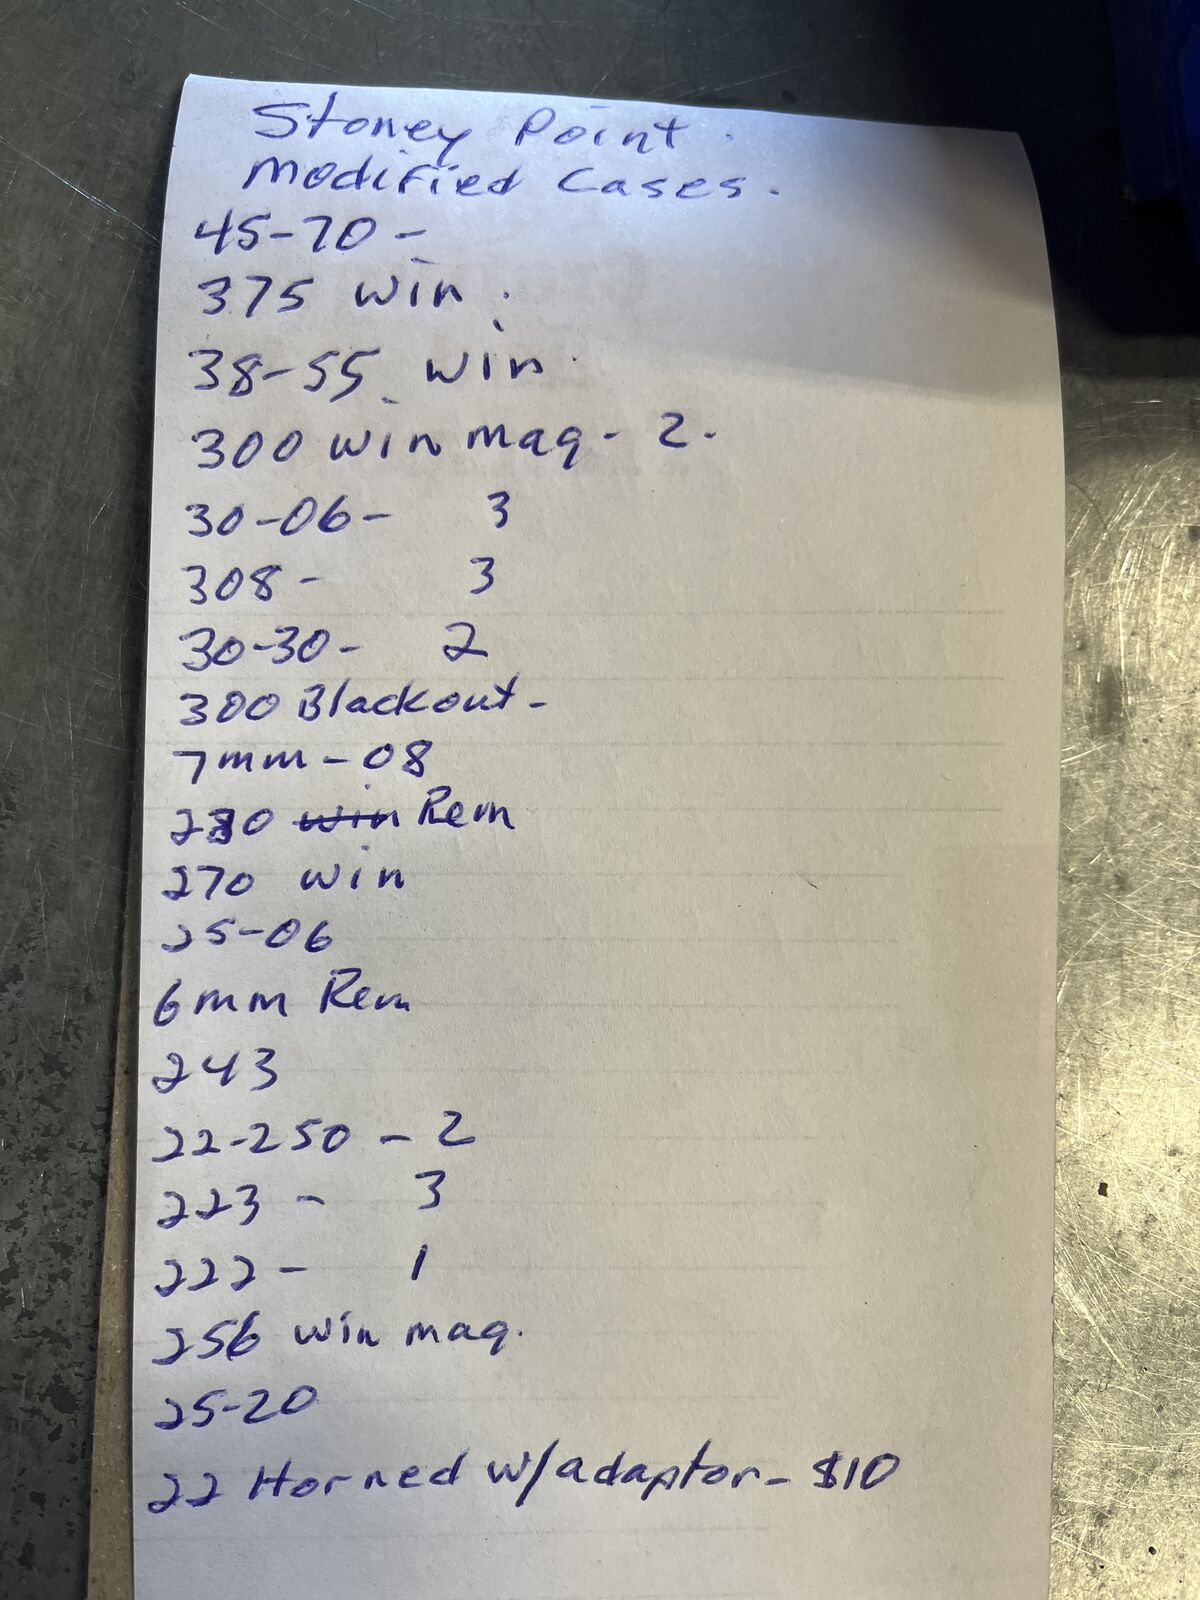 Stoney Point.
Modified Cases.
45-70-
375 Win.
38-55 Win.
300 Win mag- 2.
30-06- 3
308- 3
30-30- 2
300 Blackout-
7mm-08
280 Rem
270 Win
25-06
6mm Rem
243
22-250 - 2
223 - 3
222 - 1
256 Win mag.
25-20
22 Horned w/adaptor- $10